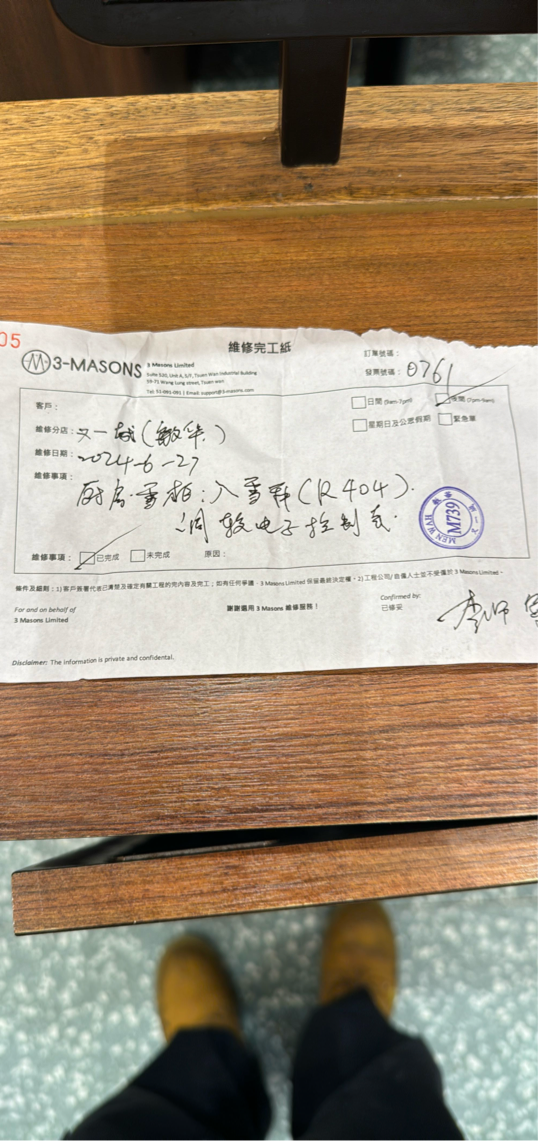 05
維修完工紙
3-MASONS
3 Masons Limited
Suite 530, Unit A, 5/F, Tsuen Wan Industrial Building
59-71 Wang Lung street, Tsuen wan
訂單號碼：
發票號碼：0761
客戶：
日間 (9am-7pm)
夜間 (7pm-9am)
星期日及公眾假期
緊急單
維修分店：又一城(敏華)
維修日期：2024-6-27
維修事項：
廚房雪柜：入雪種(R404).
調較电子控制
MEN WAH
M739
維修事項：
已完成
未完成
原因：
條件及細則：1) 客戶簽署代表已清楚及確定有關工程的完內容及完工；如有任何爭議，3 Masons Limited 保留最終決定權。2) 工程公司/
3 Masons Limited。
For and on behalf of
3 Masons Limited
謝謝選用 3 Masons 維修服務！
Confirmed by:
已修妥
Disclaimer: The information is private and confidential.